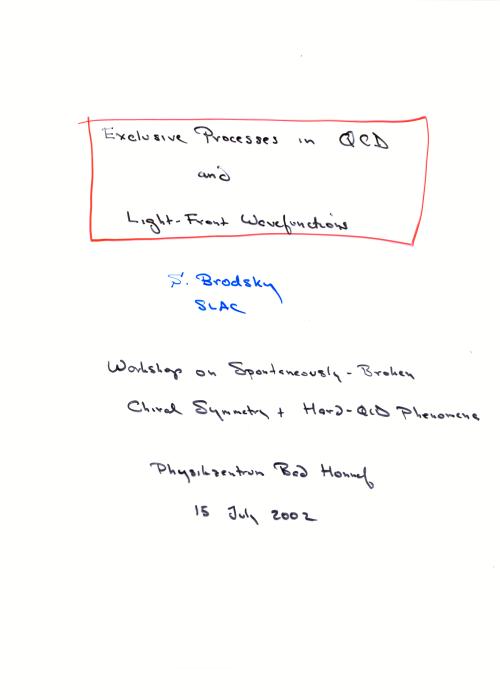 Exclusive Processes in QCD
and
Light-Front Wavefunctions
S. Brodsky
SLAC
Workshop on Spontaneously-Broken
Chiral Symmetry + Hard-QCD Phenomena
Physikzentrum Bad Honnef
15 July 2002